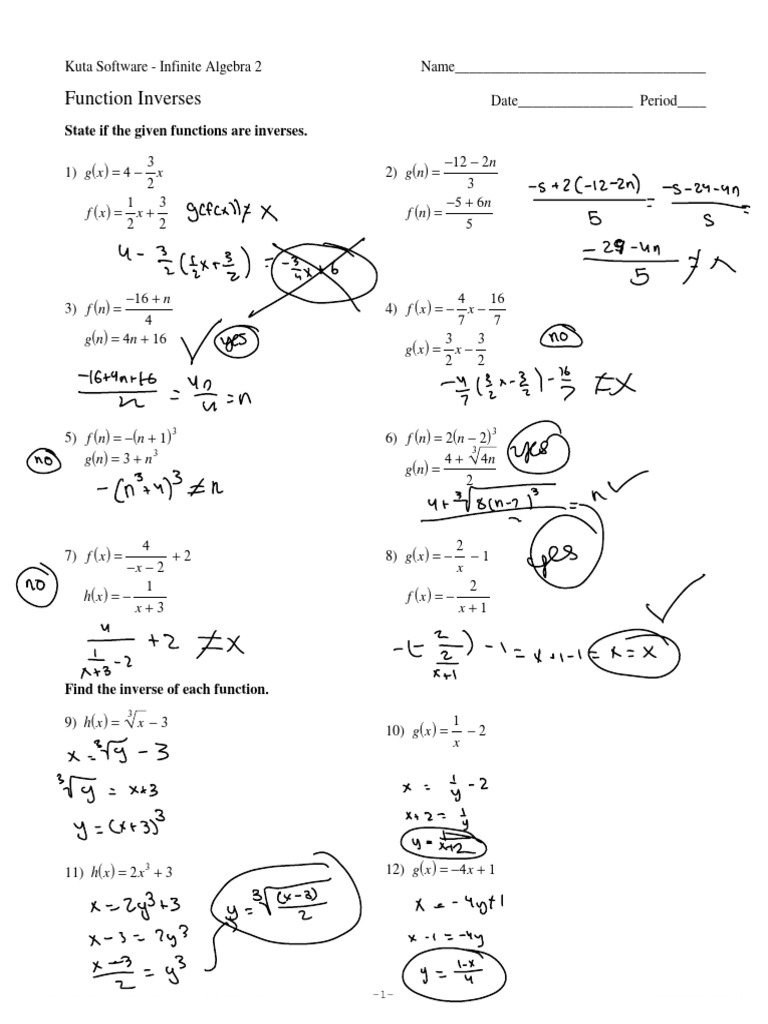 Kuta Software - Infinite Algebra 2 Name___________________________________
Function Inverses Date________________ Period____
State if the given functions are inverses.
1) g(x) = 4 - 3/2 x
f(x) = 1/2 x + 3/2
g(f(x)) ≠ x
4 - 3/2 (1/2 x + 3/2) = -3/4 x + 6
2) g(n) = (-12 - 2n)/3
f(n) = (-5 + 6n)/5
(-5 + 2(-12-2n))/5 = (-5-24-4n)/5 =
(-29-4n)/5 ≠ n
3) f(n) = (-16 + n)/4
g(n) = 4n + 16
yes
(-16+4n+16)/4 = 4n/4 = n
4) f(x) = -4/7 x - 16/7
g(x) = 3/2 x - 3/2
no
-4/7 (3/2 x - 3/2) - 16/7 ≠ x
5) f(n) = -(n + 1)³
g(n) = 3 + n³
no
-(n³+4)³ ≠ n
6) f(n) = 2(n - 2)³
g(n) = (4 + ∛4n)/2
yes
(4+∛8(n-2)³)/2 = n ✓
7) f(x) = 4/(-x - 2) + 2
h(x) = -1/(x + 3)
no
4/(1/(x+3) - 2) + 2 ≠ x
8) g(x) = -2/x - 1
f(x) = -2/(x + 1)
yes
-(-2/(2/(x+1))) - 1 = x+1-1 = x = x
Find the inverse of each function.
9) h(x) = ∛x - 3
x = ∛y - 3
∛y = x+3
y = (x+3)³
10) g(x) = 1/x - 2
x = 1/y - 2
x+2 = 1/y
y = 1/(x+2)
11) h(x) = 2x³ + 3
x = 2y³+3
x-3 = 2y³
(x-3)/2 = y³
y = ∛((x-3)/2)
12) g(x) = -4x + 1
x = -4y+1
x-1 = -4y
y = (1-x)/4
-1-